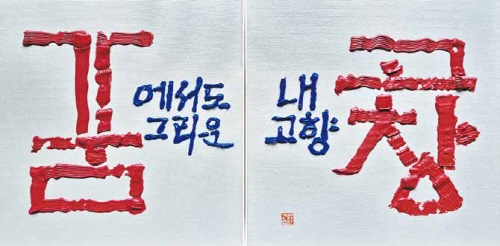 꿈
에서도
그리운
내
고향:
고창